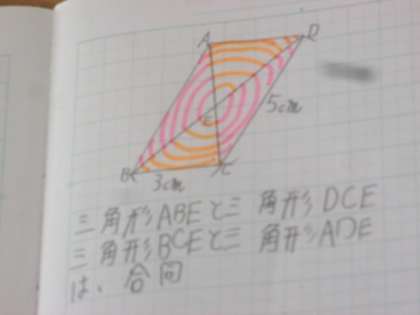 A
D
E
5cm
B
C
3cm
三角形ABEと三角形DCE
三角形BCEと三角形ADE
は、合同